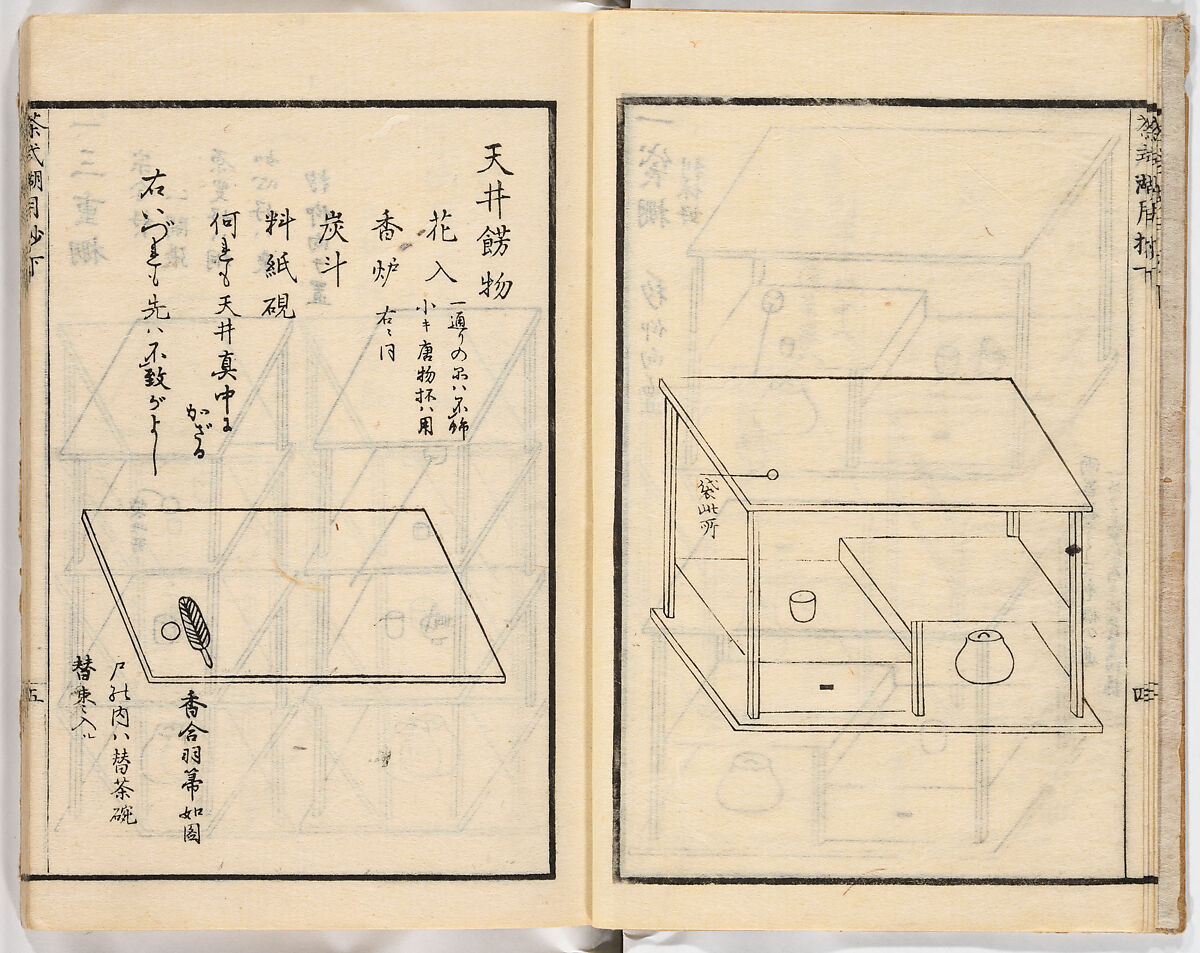 茶式湖月抄下
四
袋此所
天井餝物
花入
一通りの品ハ不餝
小キ唐物抔ハ用
香炉 右ニ同
炭斗
料紙硯
何れも天井真中に
かざる
右いづれも先ハ不致がよし
香合羽箒如図
戸の内ハ替茶碗
替棗入ル
茶式湖月抄下
五